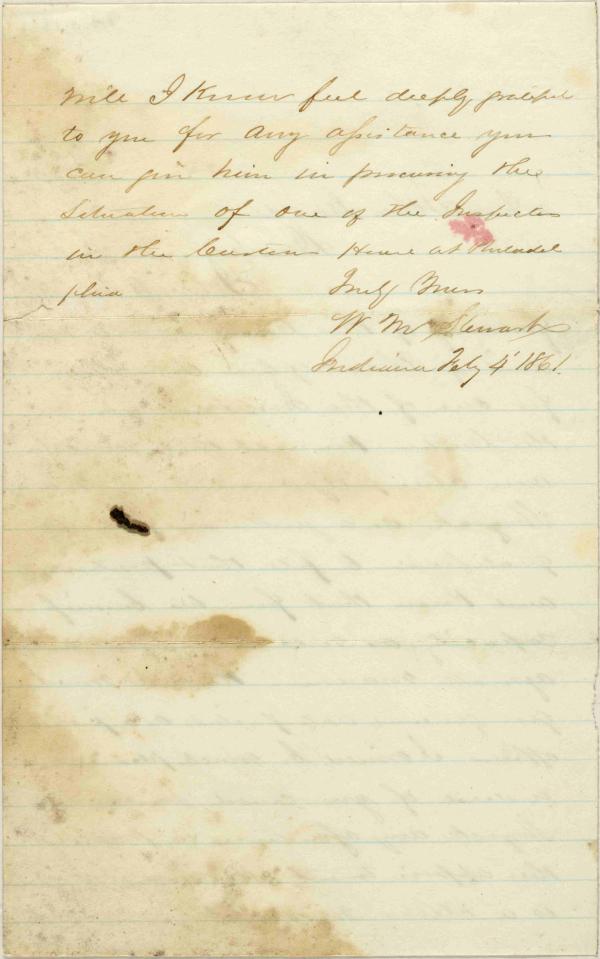 will I Know feel deeply grateful
to you for any assistance you
can give him in procuring the
Situation of one of the Inspectors
in the Custom House at Philadel
phia
Truly Yours
W M Stewart
Indiana Feby 4' 1861.